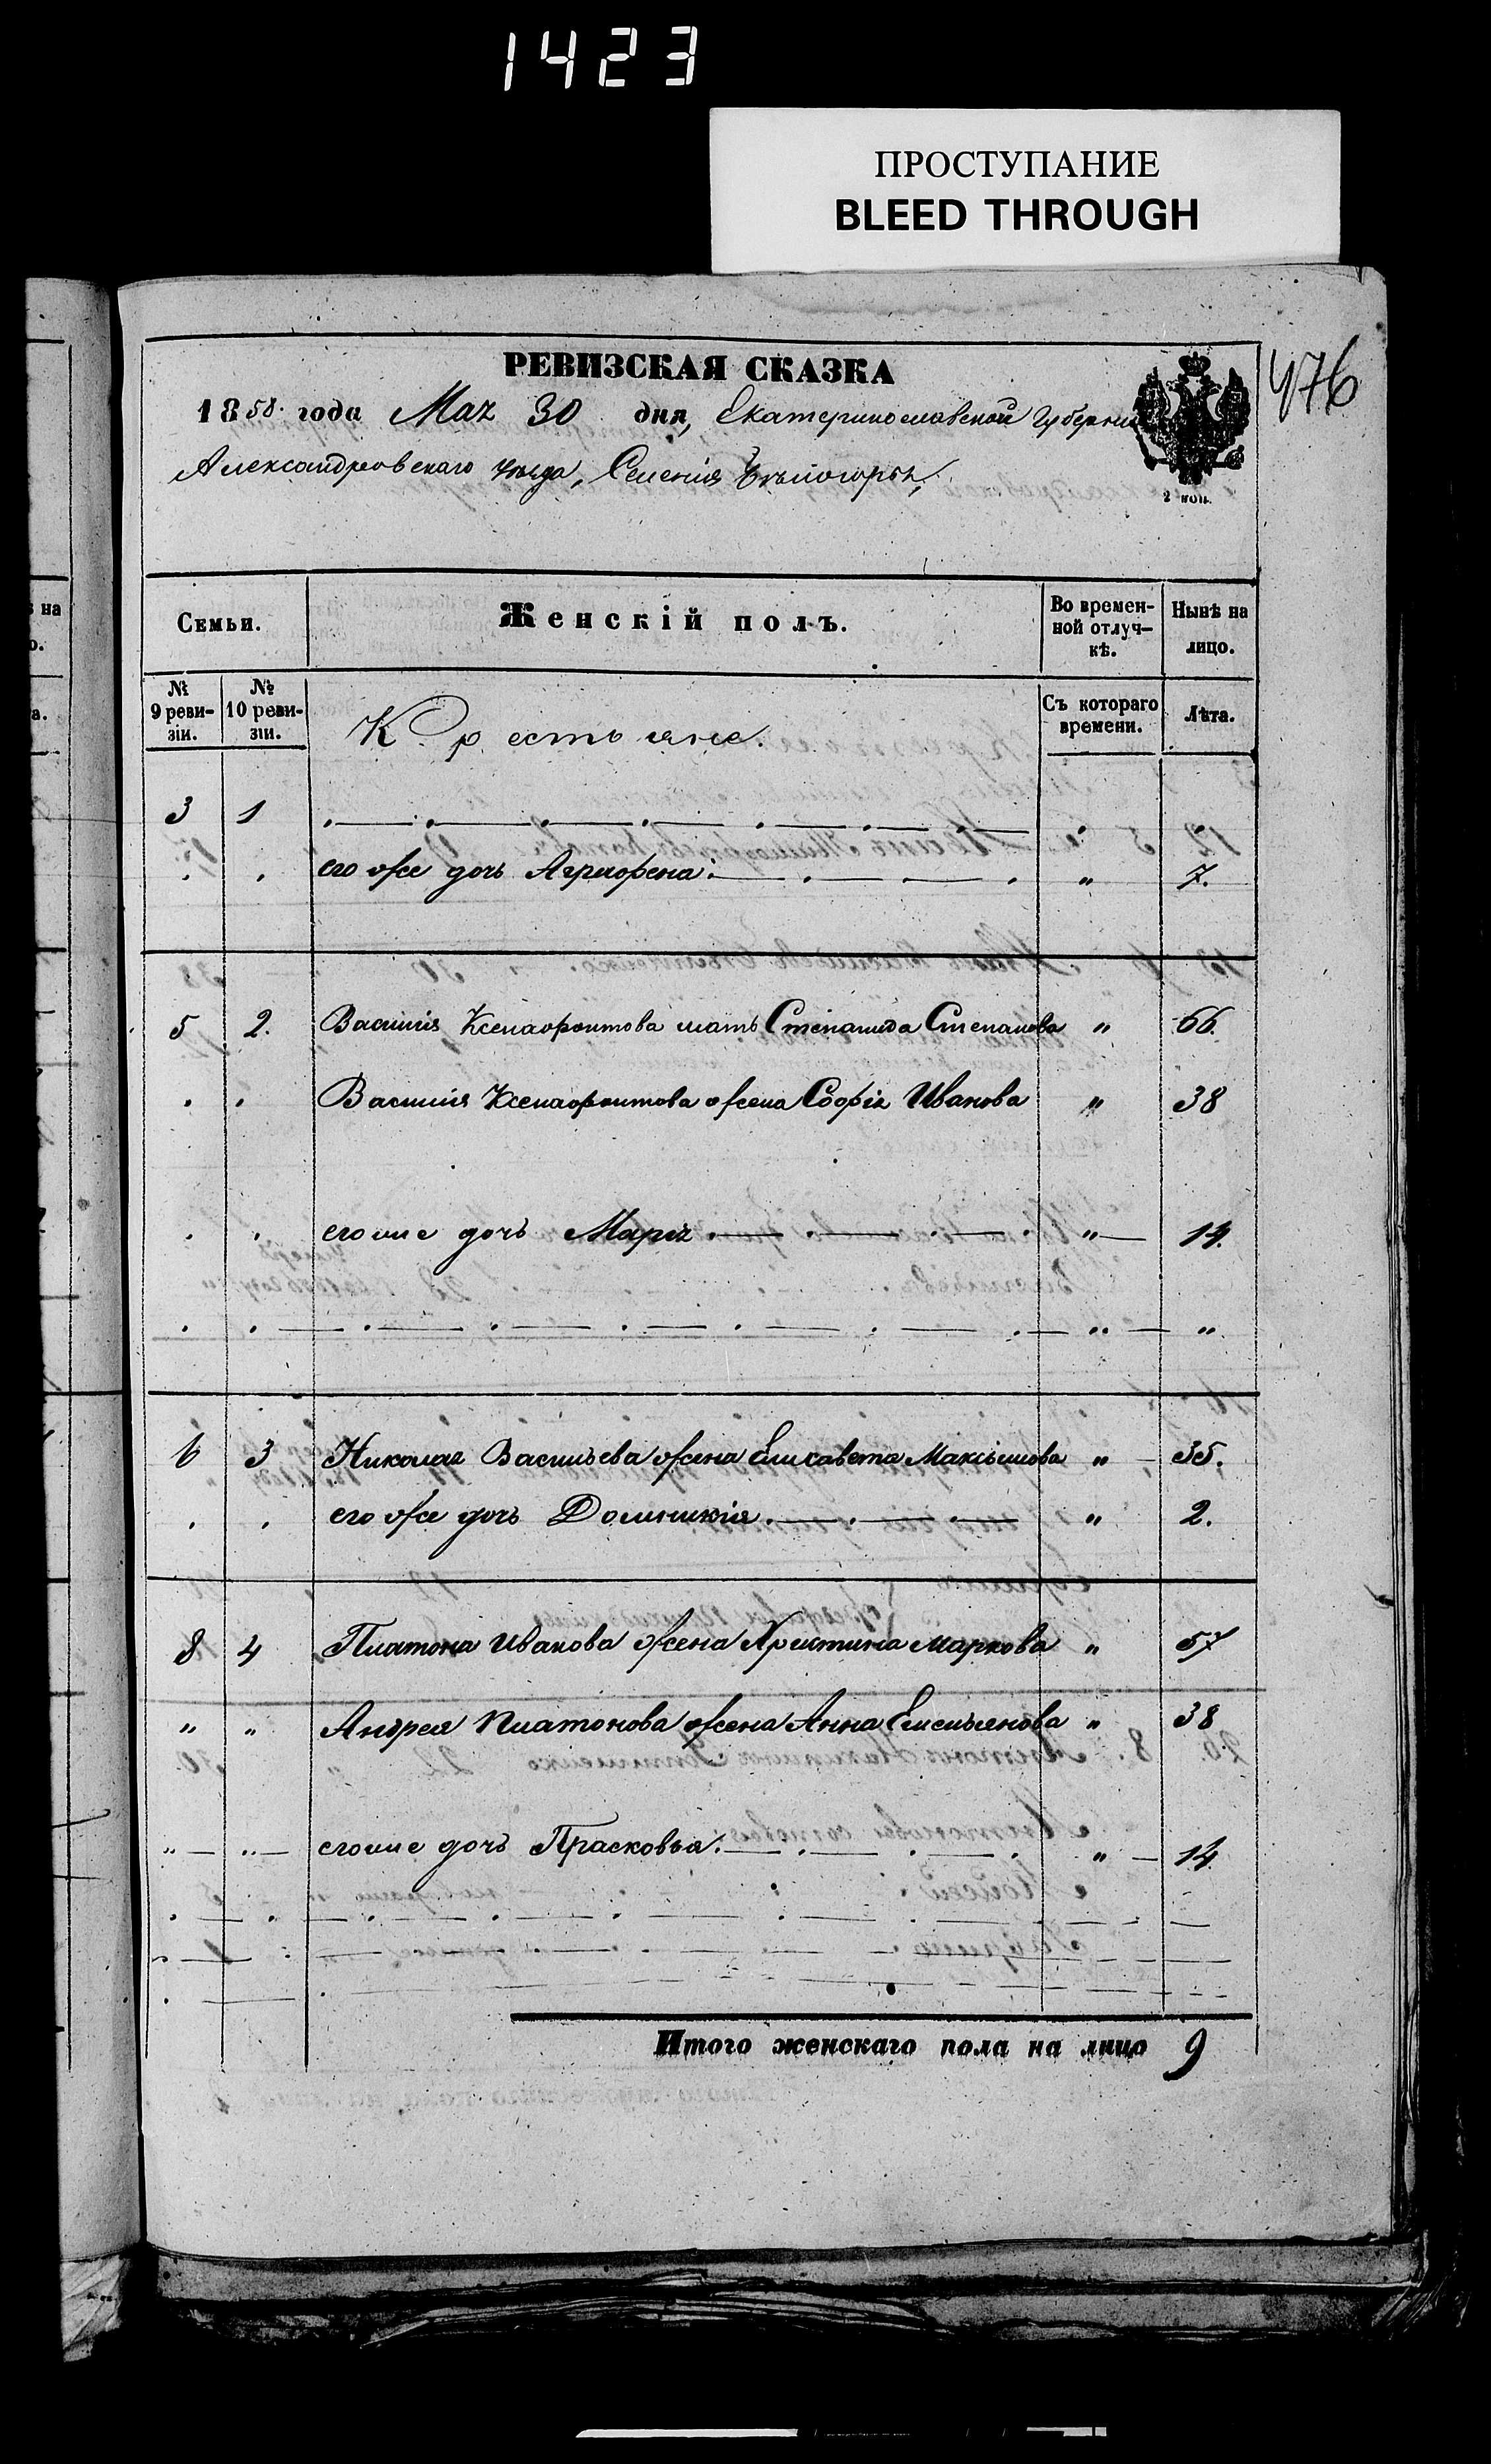 1423
ПРОСТУПАНИЕ
BLEED THROUGH
476
РЕВИЗСКАЯ СКАЗКА
1858. года Мая 30 дня, Екатеринославской Губерніи
Александровскаго уѣзда, Селенія Бѣлогорья,
2 коп.
Семьи.
Женскій полъ.
Во времен-
ной отлуч-
кѣ.
Нынѣ на
лицо.
№
9 реви-
зіи.
№
10 реви-
зіи.
Крестьяне.
Съ котораго
времени.
Лѣта.
3 1
его же дочь Агриофена „ 7.
5 2. Василія Ксенаофонтова мать Степанида Степанова „ 66.
Василія Ксенаофонтова жена Софія Иванова „ 38
его же дочь Марія „ 14.
6 3 Николая Васильева жена Елисавета Максимова „ 35.
его же дочь Домникія „ 2.
8 4 Платона Иванова жена Христина Маркова „ 57
„ „ Андрея Платонова жена Анна Емельянова „ 38
„ „ его же дочь Прасковья „ 14
Итого женскаго пола на лицо 9